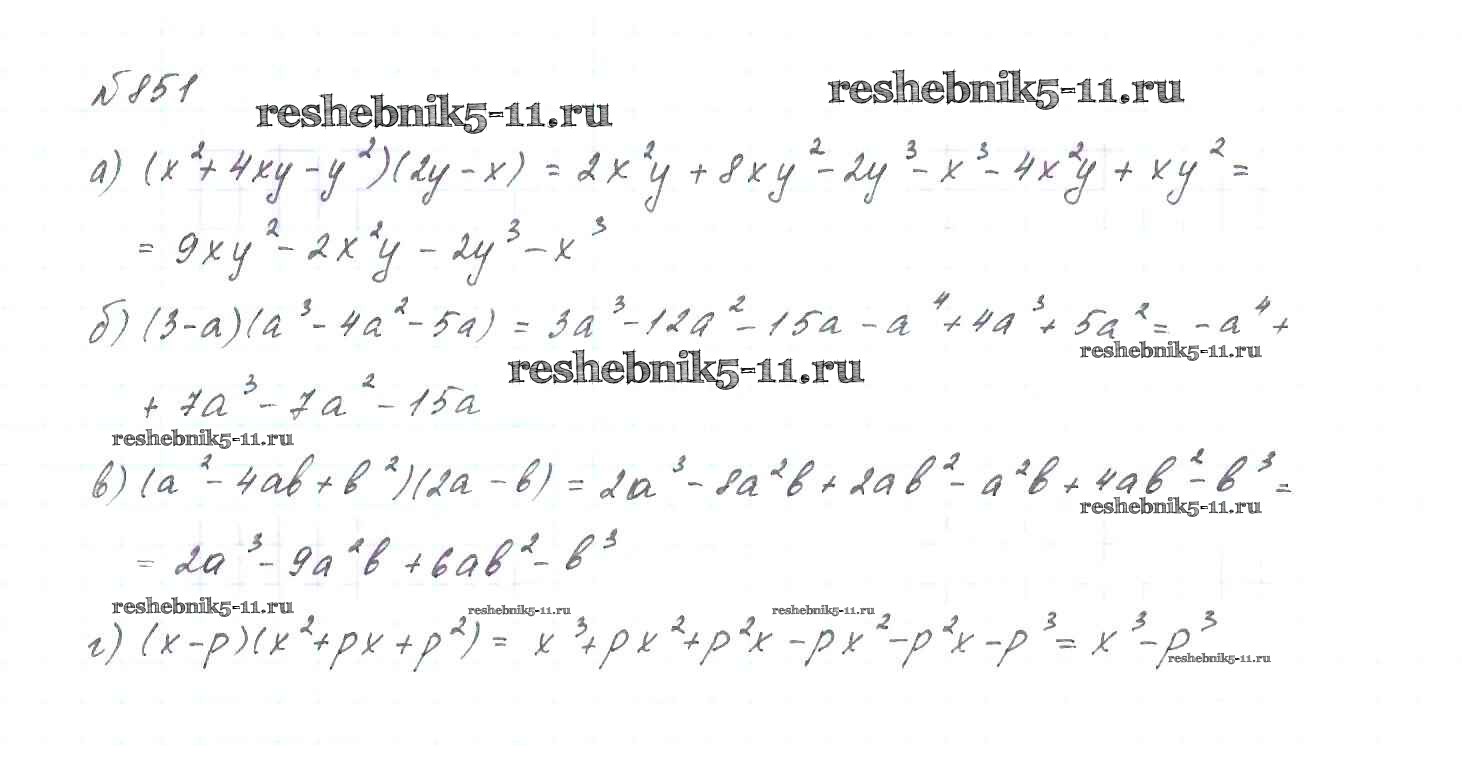 №851
reshebnik5-11.ru
reshebnik5-11.ru
а) (x²+4xy-y²)(2y-x) = 2x²y+8xy²-2y³-x³-4x²y+xy² =
= 9xy²-2x²y-2y³-x³
б) (3-a)(a³-4a²-5a) = 3a³-12a²-15a-a⁴+4a³+5a² = -a⁴+
reshebnik5-11.ru
reshebnik5-11.ru
+ 7a³-7a²-15a
reshebnik5-11.ru
в) (a²-4ab+b²)(2a-b) = 2a³-8a²b+2ab²-a²b+4ab²-b³ =
reshebnik5-11.ru
= 2a³-9a²b+6ab²-b³
reshebnik5-11.ru
reshebnik5-11.ru
reshebnik5-11.ru
г) (x-p)(x²+px+p²) = x³+px²+p²x-px²-p²x-p³ = x³-p³
reshebnik5-11.ru